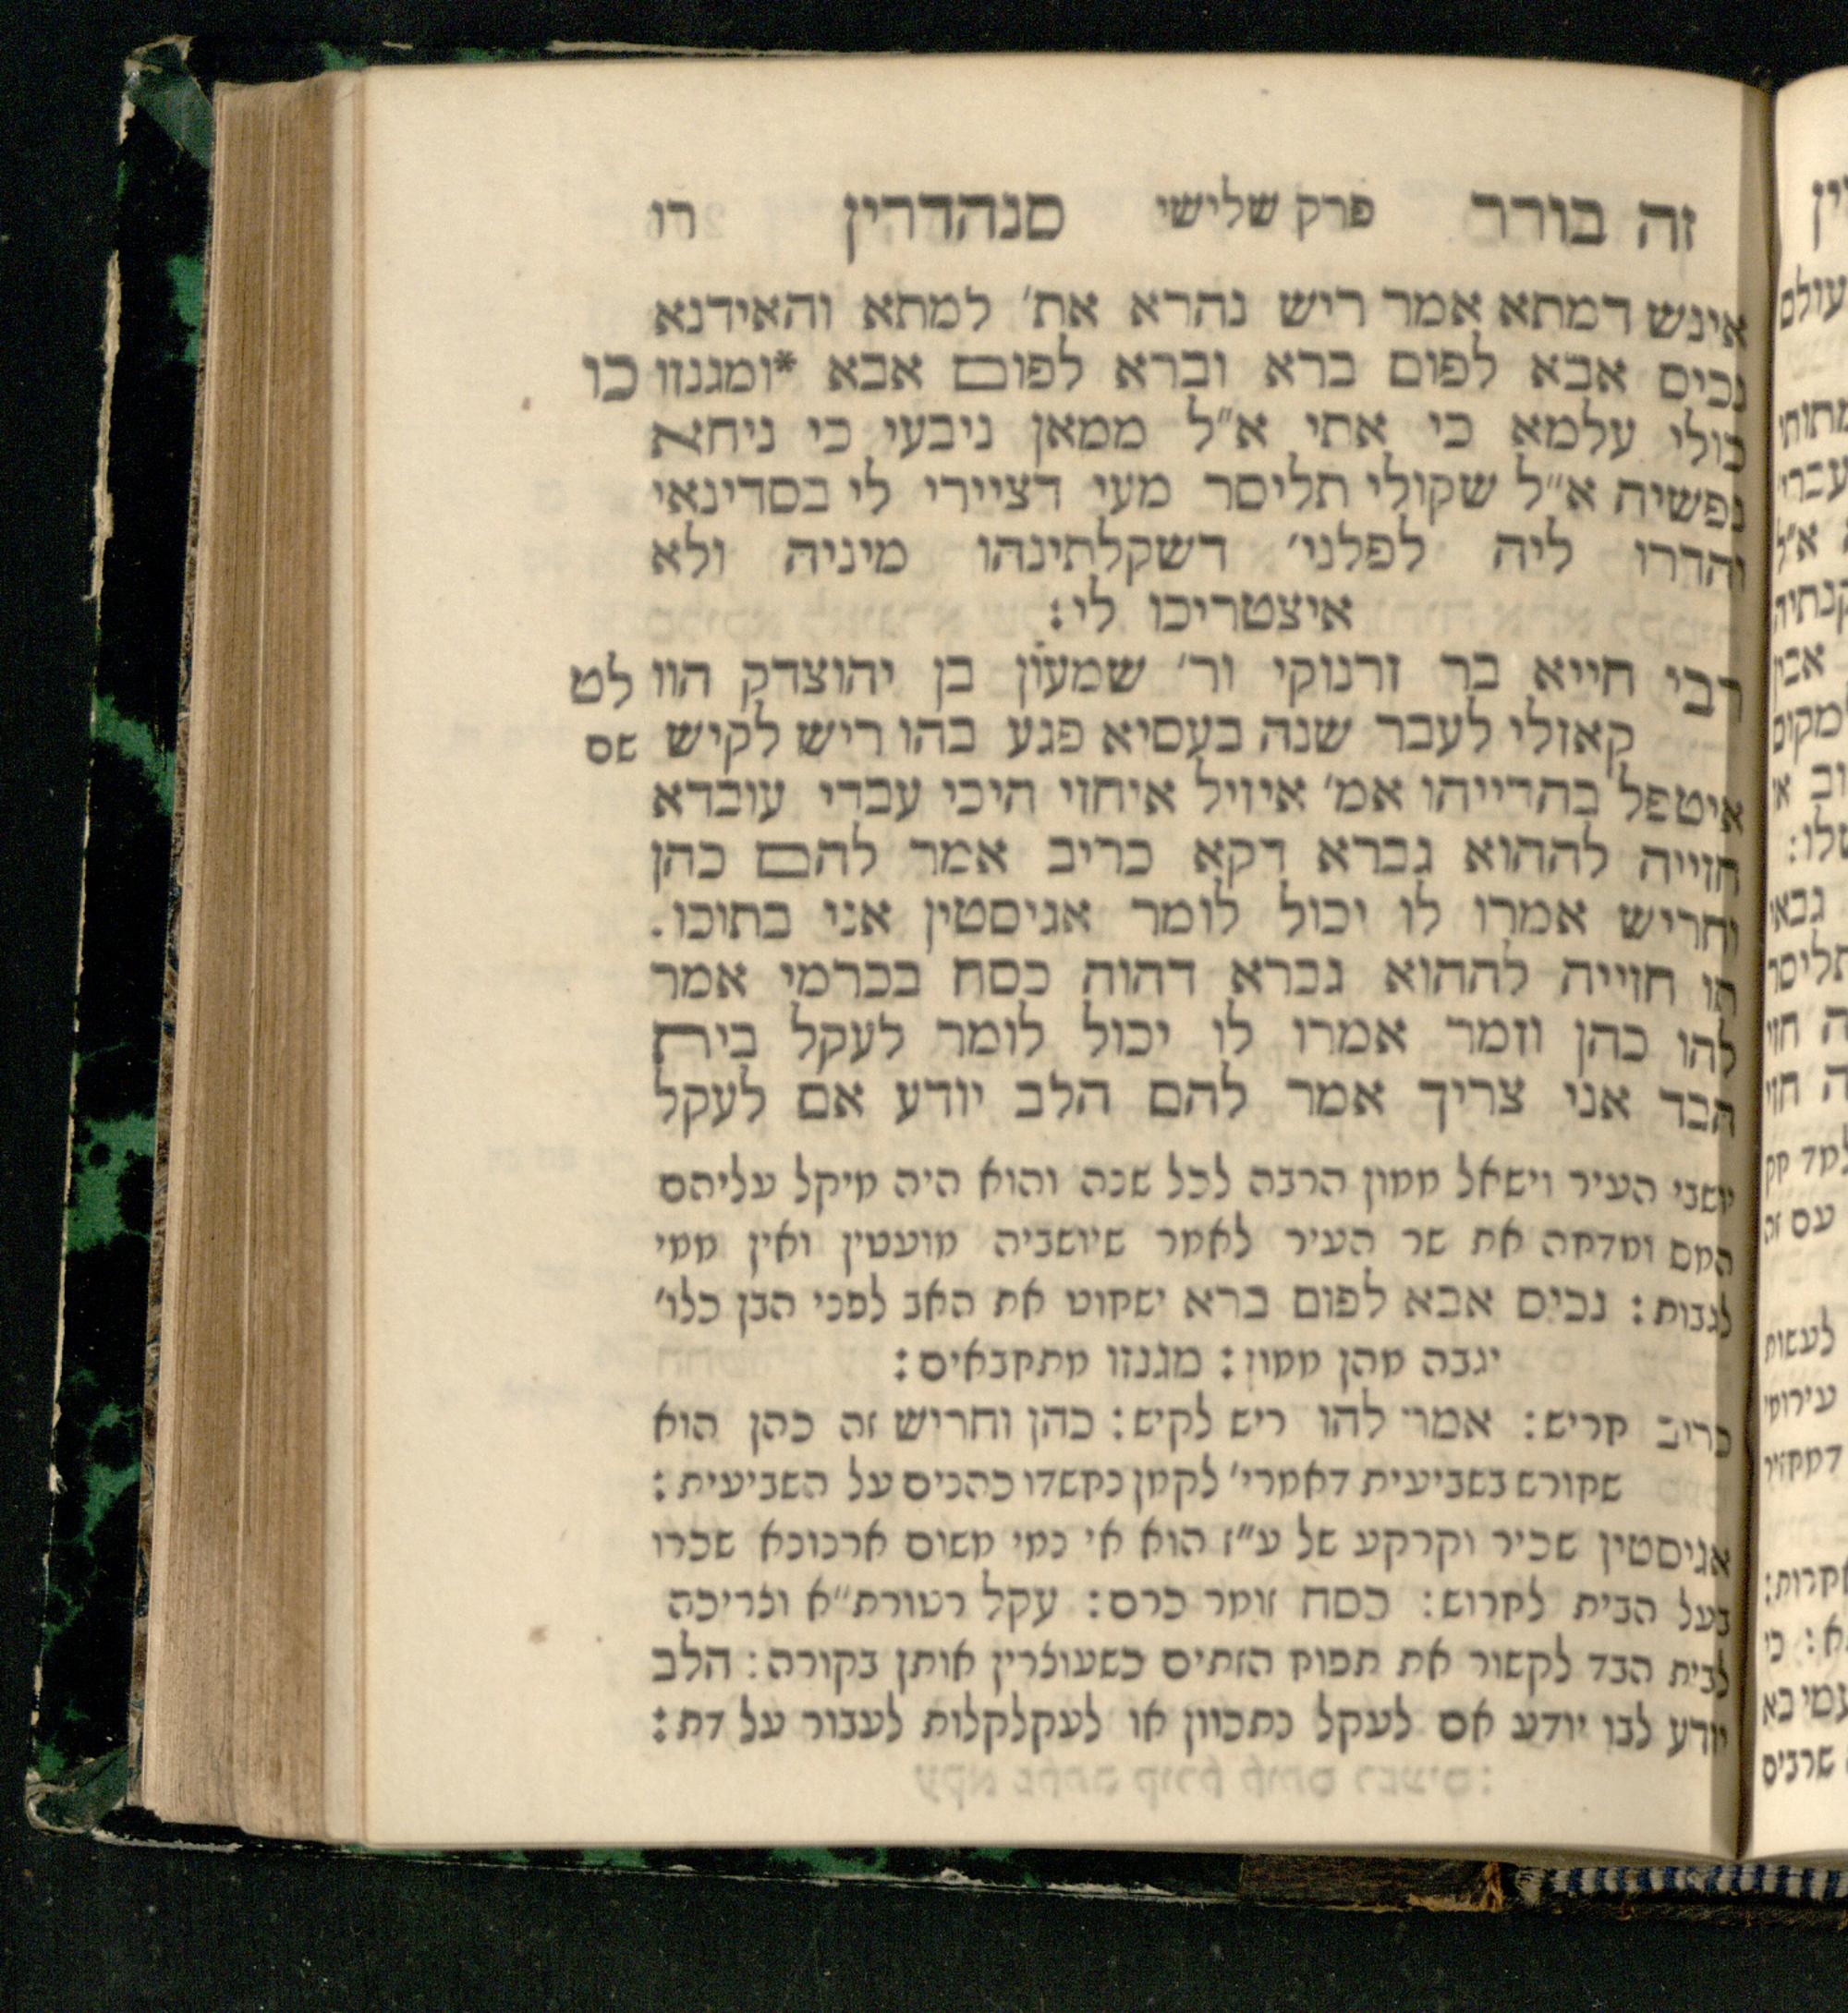 זה בורר פרק שלישי סנהדרין רו
אינש דמתא אמר ריש נהרא את׳ למתא והאידנא
נכים אבא לפום ברא וברא לפום אבא *ומגנזו כו
כולי עלמא כי אתי א״ל ממאן ניבעי כי ניחא
נפשיה א״ל שקולי תליסר מעי דציירי לי בסדינאי
והדרו ליה לפלני׳ דשקלתינהו מיניה ולא
איצטריכו לי:
רבי חייא בר זרנוקי ור׳ שמעון בן יהוצדק הוו לט
קאזלי לעבר שנה בעסיא פגע בהו ריש לקיש שם
איטפל בהדייהו אמ׳ איזיל איחזי היכי עבדי עובדא
חזייה לההוא גברא דקא כריב אמר להם כהן
וחריש אמרו לו יכול לומר אגיסטין אני בתוכו.
תו חזייה לההוא גברא דהוה כסח בכרמי אמר
להו כהן וזמר אמרו לו יכול לומר לעקל בית
הבד אני צריך אמר להם הלב יודע אם לעקל
יושבי העיר וישאל ממון הרבה לכל שנה והוא היה מיקל עליהם
המס ומדחה את שר העיר לאמר שיושביה מועטין ואין ממי
לגבות: נכים אבא לפום ברא ישחוט את האב לפני הבן כלו׳
יגבה מהן ממון: מגנזו מתחבאים:
כריב חריש: אמר להו ריש לקיש: כהן וחריש זה כהן הוא
שחורש בשביעית דאמרי׳ לקמן נחשדו כהנים על השביעית:
אגיסטין שכיר וקרקע של ע״ז הוא אי נמי משום ארנונא שכרו
בעל הבית לחרוש: כסח זומר כרם: עקל רטורת״א וצריכה
לבית הבד לקשור את תפוח הזתים כשעוצרין אותן בקורה: הלב
יודע לבו יודע אם לעקל נתכוון או לעקלקלות לעבור על דת:
ין
עולם
א״ל
למקום
שלו:
תליסר
ה חזי
ה חזי
עם זה
לעשות
שרבים